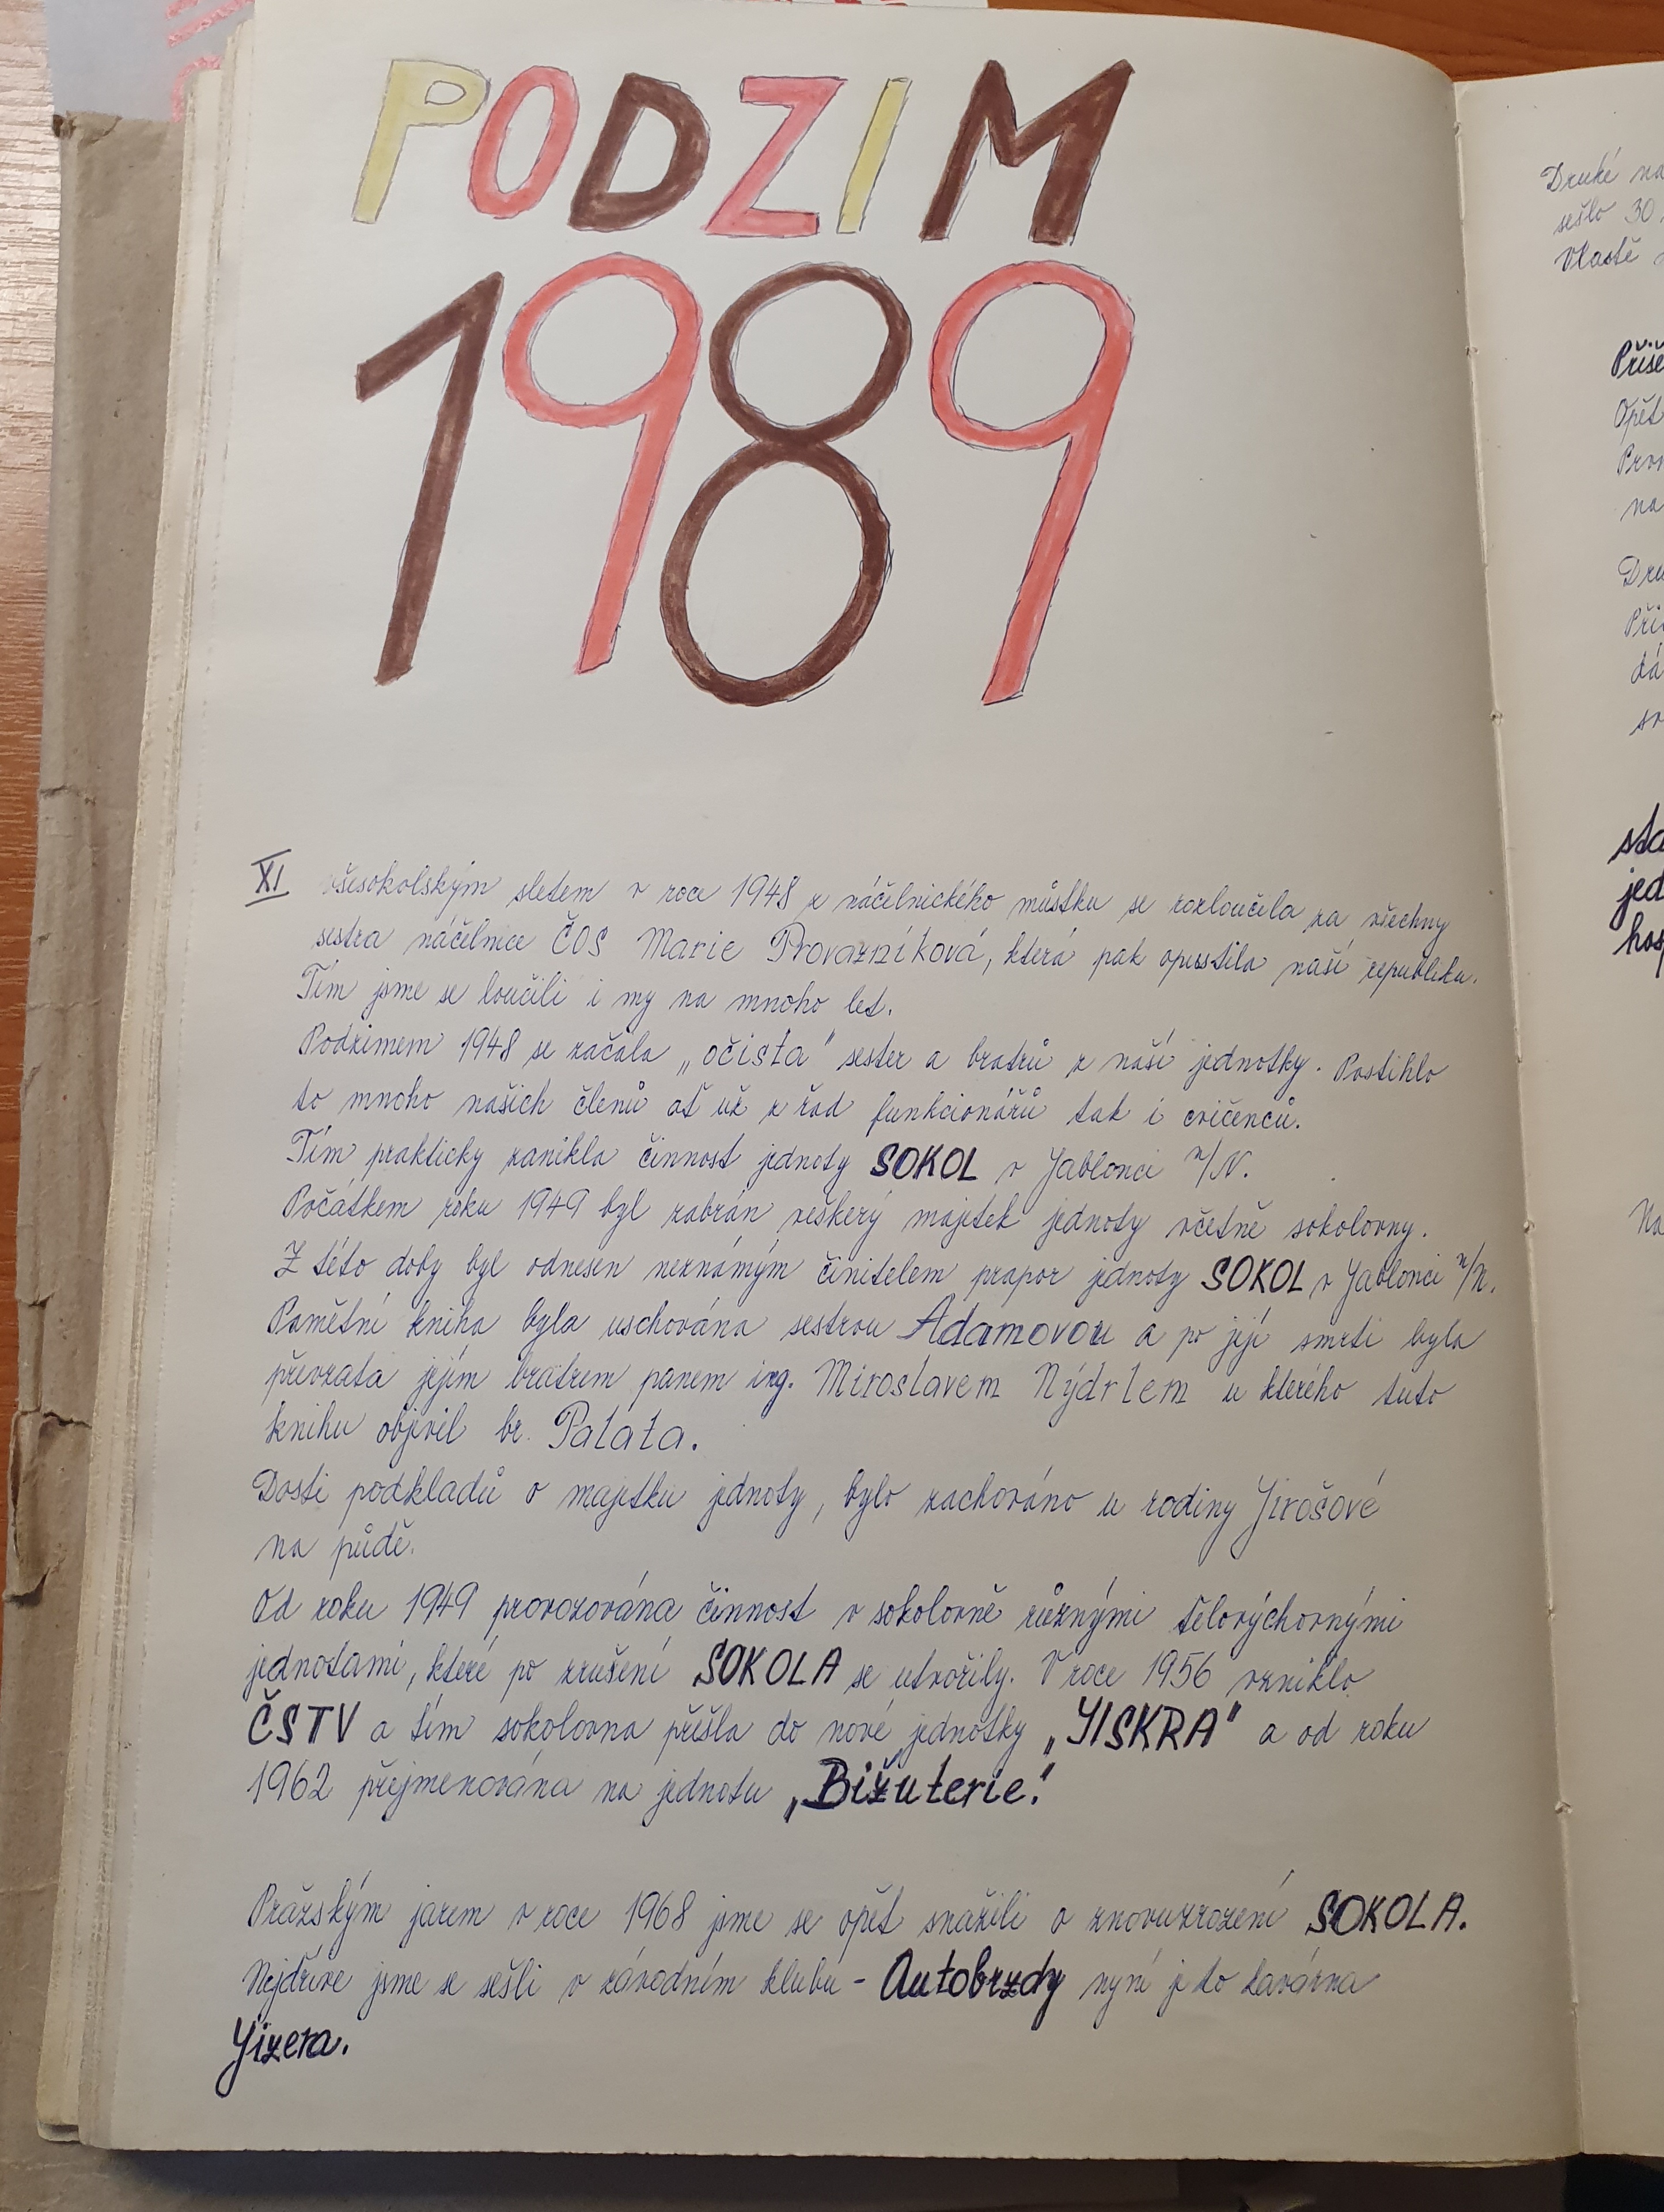 PODZIM
1989
XI všesokolským sletem v roce 1948 z náčelnického můstku se rozloučila za všechny
sestra náčelnice ČOS Marie Provazníková, která pak opustila naší republiku.
Tím jsme se loučili i my na mnoho let.
Podzimem 1948 se začala „očista" sester a bratrů z naší jednotky. Postihlo
to mnoho našich členů ať už z řad funkcionářů tak i cvičenců.
Tím prakticky zanikla činnost jednoty SOKOL v Jablonci n/N.
Počátkem roku 1949 byl zabrán veškerý majetek jednoty včetně sokolovny.
Z této doby byl odnesen neznámým činitelem prapor jednoty SOKOL v Jablonci n/N.
Pamětní kniha byla uschována sestrou Adamovou a po její smrti byla
převzata jejím bratrem panem ing. Miroslavem Nýdrlem u kterého tuto
knihu objevil br. Patata.
Dosti podkladů o majetku jednoty, bylo zachováno u rodiny Jirošové
na půdě.
Od roku 1949 provozována činnost v sokolovně různými tělovýchovnými
jednotami, které po zrušení SOKOLA se utvořily. V roce 1956 vzniklo
ČSTV a tím sokolovna přešla do nové jednotky „JISKRA" a od roku
1962 přejmenována na jednotu „Bižuterie."
Pražským jarem v roce 1968 jsme se opět snažili o znovuzrození SOKOLA.
Nejdříve jsme se sešli v závodním klubu - Autobrzdy nyní je to kavárna
Jizera.
Druhé
sešlo 30
Vlastě
Opět
jed